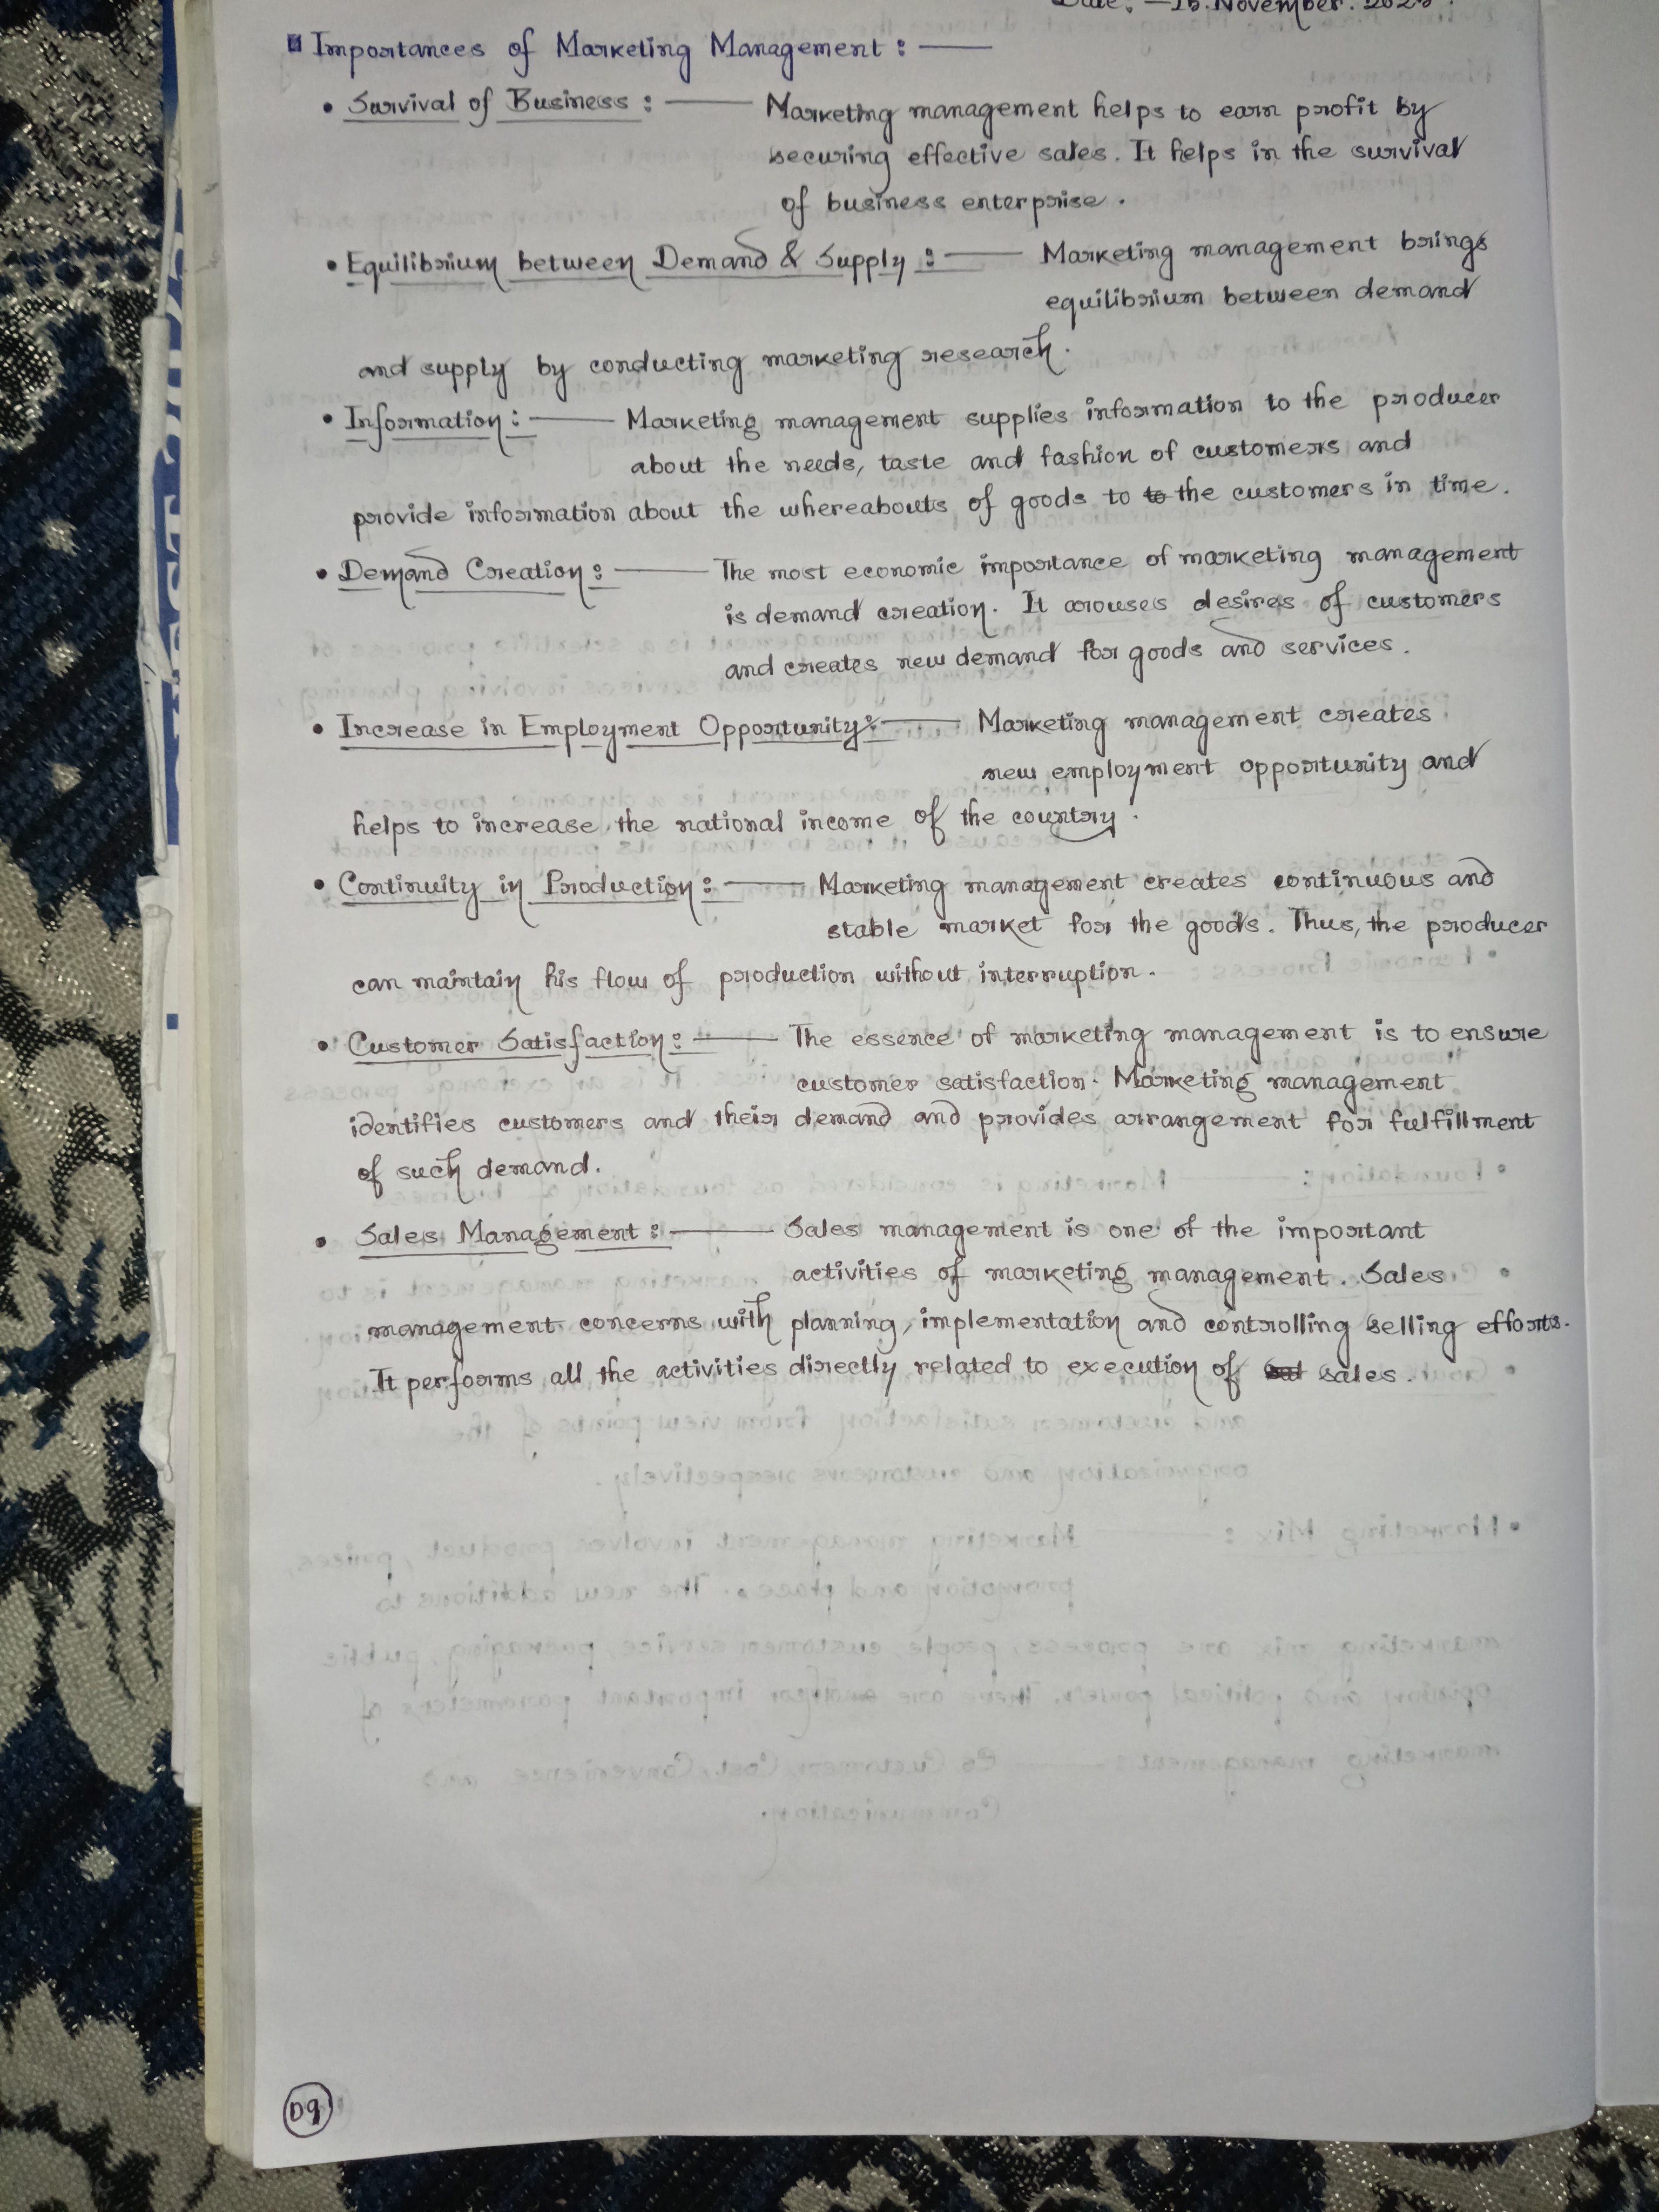 Date: - 15. November. 202
Importances of Marketing Management : —
• Survival of Business : — Marketing management helps to earn profit by
securing effective sales. It helps in the survival
of business enterprise.
• Equilibrium between Demand & Supply : — Marketing management brings
equilibrium between demand
and supply by conducting marketing research.
• Information : — Marketing management supplies information to the producer
about the needs, taste and fashion of customers and
provide information about the whereabouts of goods to to the customers in time.
• Demand Creation : — The most economic importance of marketing management
is demand creation. It arouses desires of customers
and creates new demand for goods and services.
• Increase in Employment Opportunity : — Marketing management creates
new employment opportunity and
helps to increase the national income of the country.
• Continuity in Production : — Marketing management creates continuous and
stable market for the goods. Thus, the producer
can maintain his flow of production without interruption.
• Customer Satisfaction : — The essence of marketing management is to ensure
customer satisfaction. Marketing management
identifies customers and their demand and provides arrangement for fulfillment
of such demand.
• Sales Management : — Sales management is one of the important
activities of marketing management. Sales
management concerns with planning, implementation and controlling selling efforts.
It performs all the activities directly related to execution of sales.
09